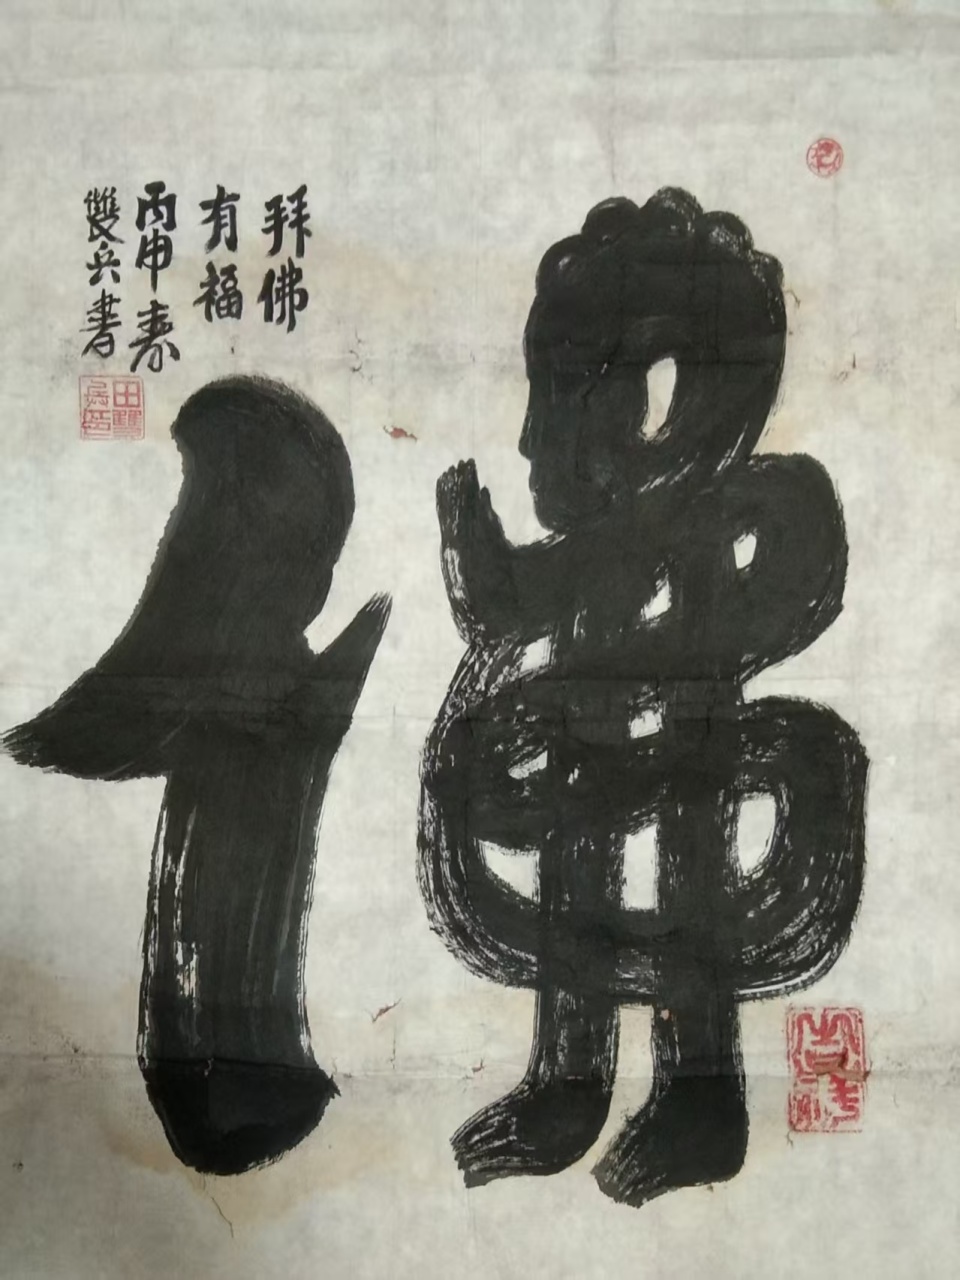 佛
拜佛
有福
丙申春
雙兵書
田雙兵印